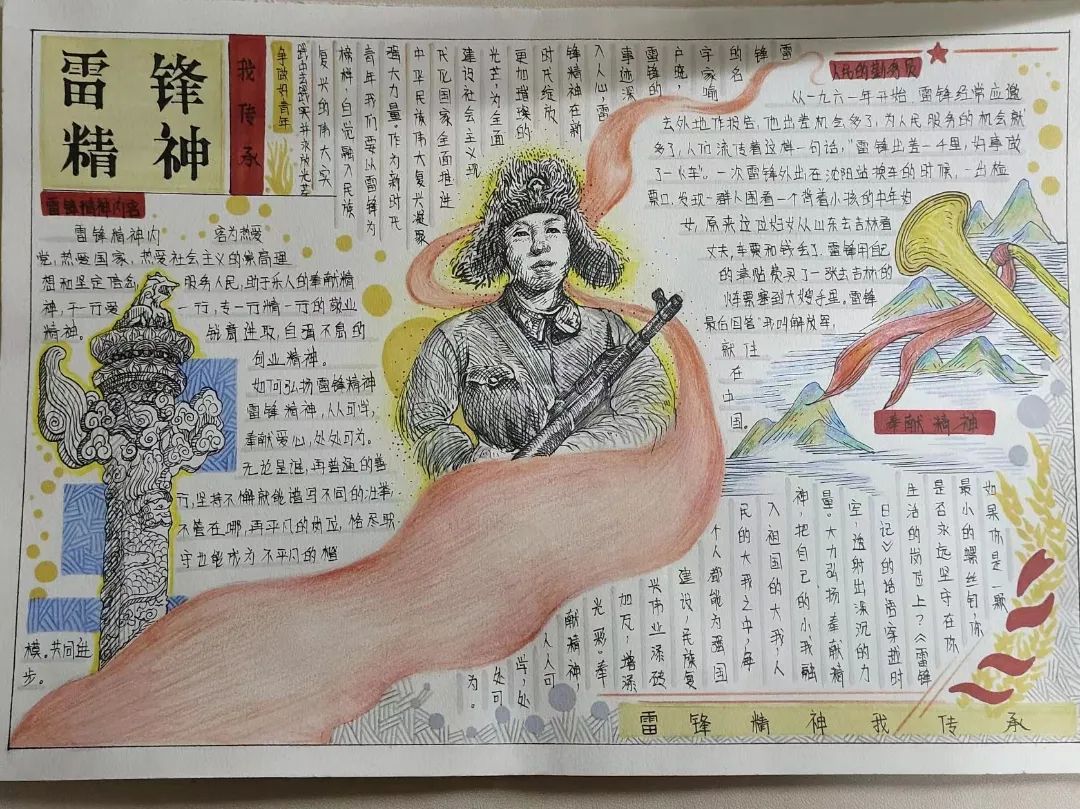 雷锋
精神
我传承
争做好青年
雷锋
的名
字家喻
户晓，
雷锋的
事迹深
入人心，雷
锋精神在新
时代绽放
更加璀璨的
光芒，为全面
建设社会主义现
代化国家全面推进
中华民族伟大复兴凝聚
强大力量。作为新时代
青年我们要以雷锋为
榜样，自觉融入民族
复兴的伟大实
雷锋精神内容
雷锋精神内容为热爱
党，热爱国家，热爱社会主义的崇高理
想和坚定信念，服务人民，助于乐人的奉献精
神，干一行爱一行，专一行精一行的敬业
精神。锐意进取，自强不息的
创业精神。
如何弘扬雷锋精神
雷锋精神，人人可学，
奉献爱心，处处可为。
无论是谁，再普通的善
行，坚持不懈就能谱写不同的壮举，
不管在哪，再平凡的岗位，恪尽职
守也能成为不平凡的楷
模。共同进
步。
人民的勤务员
从一九六一年开始，雷锋经常应邀
去外地作报告，他出差机会多了，为人民服务的机会就
多了，人们流传着这样一句话，"雷锋出差一千里，好事做
了一火车"。一次雷锋外出在沈阳站换车的时候，一出检
票口，发现一群人围看一个背着小孩的中年妇
女，原来这位妇女从山东去吉林看
丈夫，车票和钱丢了，雷锋用自己
的津贴费买了一张去吉林的
火车票塞到大嫂手里。雷锋
最后回答"我叫解放军，
就住
在
中
国。
奉献精神
如果你是一颗
最小的螺丝钉，你
是否永远坚守在你
生活的岗位上？《雷锋
日记》的话语穿越时
空，透射出深沉的力
量。大力弘扬奉献精
神，把自己的小我融
入祖国的大我，人
民的大我之中，每
个人都能为强国
建设，民族复
兴伟业添砖
加瓦，增添
光彩。奉
献精神，
人人可
学，处
处可
为。
雷锋精神我传承